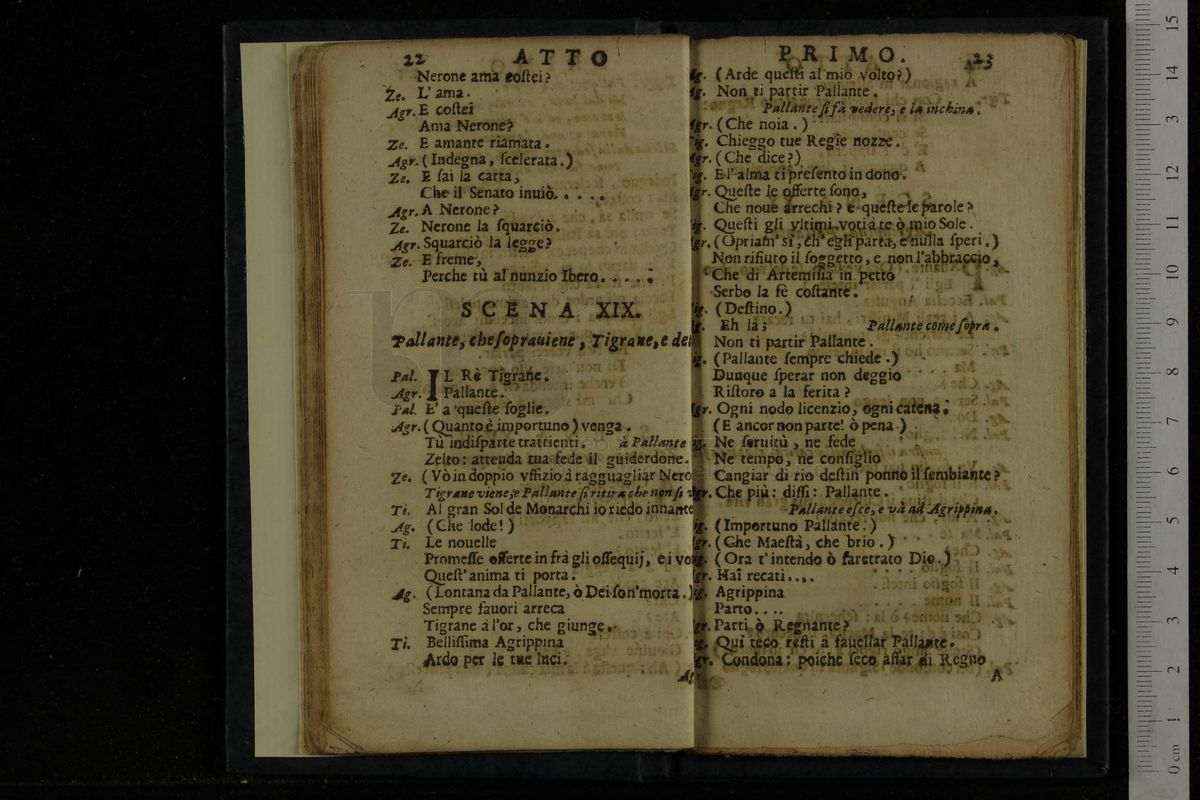 22 ATTO
Nerone ama coſtei?
Ze. L'ama.
Agr. E coſtei
Ama Nerone?
Ze. E amante riamata.
Agr. (Indegna, ſcelerata.)
Ze. E ſai la carta,
Che il Senato inuiò.....
Agr. A Nerone?
Ze. Nerone la ſquarciò.
Agr. Squarciò la legge?
Ze. E freme,
Perche tù al nunzio Ibero.....
SCENA XIX.
Pallante, che ſoprauiene, Tigrane, e det
Pal. IL Rè Tigrane.
Agr. Pallante.
Pal. E' a queſte ſoglie.
Agr. (Quanto è importuno) venga.
Tù indiſparte trattienti. à Pallante
Zelto: attenda tua fede il guiderdone.
Ze. (Vò in doppio vffizio à ragguagliar Nero
Tigrane viene, e Pallante ſi ritira che non ſi v
Ti. Al gran Sol de Monarchi io riedo innante
Ag. (Che lode!)
Ti. Le nouelle
Promeſſe offerte in frà gli oſſequij, e i vo
Queſt'anima ti porta.
Ag. (Lontana da Pallante, ò Dei ſon'morta.)
Sempre fauori arreca
Tigrane à l'or, che giunge.
Ti. Belliſſima Agrippina
Ardo per le tue luci.
Ag
PRIMO. 23
g. (Arde queſti al mio volto?)
g. Non ti partir Pallante.
Pallante ſi fà vedere, e la inchina.
gr. (Che noia.)
ig. Chieggo tue Regie nozze.
gr. (Che dice?)
ig. E l'alma ti preſento in dono.
gr. Queſte le offerte ſono,
Che noue arrechi? e queſte le parole?
ig. Queſti gli vltimi voti à te ò mio Sole.
gr. (Opriam' sì, ch'egli parta, e nulla ſperi.)
Non rifiuto il ſoggetto, e non l'abbraccio,
Che di Artemiſia in petto
Serbo la fè coſtante.
ig. (Deſtino.)
g. Eh là; Pallante come ſopra.
Non ti partir Pallante.
ig. (Pallante ſempre chiede.)
Dunque ſperar non deggio
Riſtoro a la ferita?
gr. Ogni nodo licenzio, ogni catena.
(E ancor non parte! ò pena.)
ig. Ne ſeruitù, ne fede
Ne tempo, ne conſiglio
Cangiar di rio deſtin ponno il ſembiante?
gr. Che più: diſſi: Pallante.
Pallante eſce, e và ad Agrippina.
ig. (Importuno Pallante.)
gr. (Che Maeſtà, che brio.)
ig. (Ora t'intendo ò faretrato Dio.)
gr. Hai recati....
ig. Agrippina
Parto....
gr. Parti ò Regnante?
ig. Quì teco reſti à fauellar Pallante.
gr. Condona: poiche ſeco affar di Regno
A